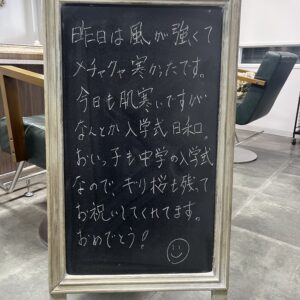 昨日は風が強くて
メチャクチャ寒かったです。
今日も肌寒いですが
なんとか入学式日和。
おいっ子も中学の入学式
なので、ギリ桜も残って
お祝いしてくれてます。
おめでとう!